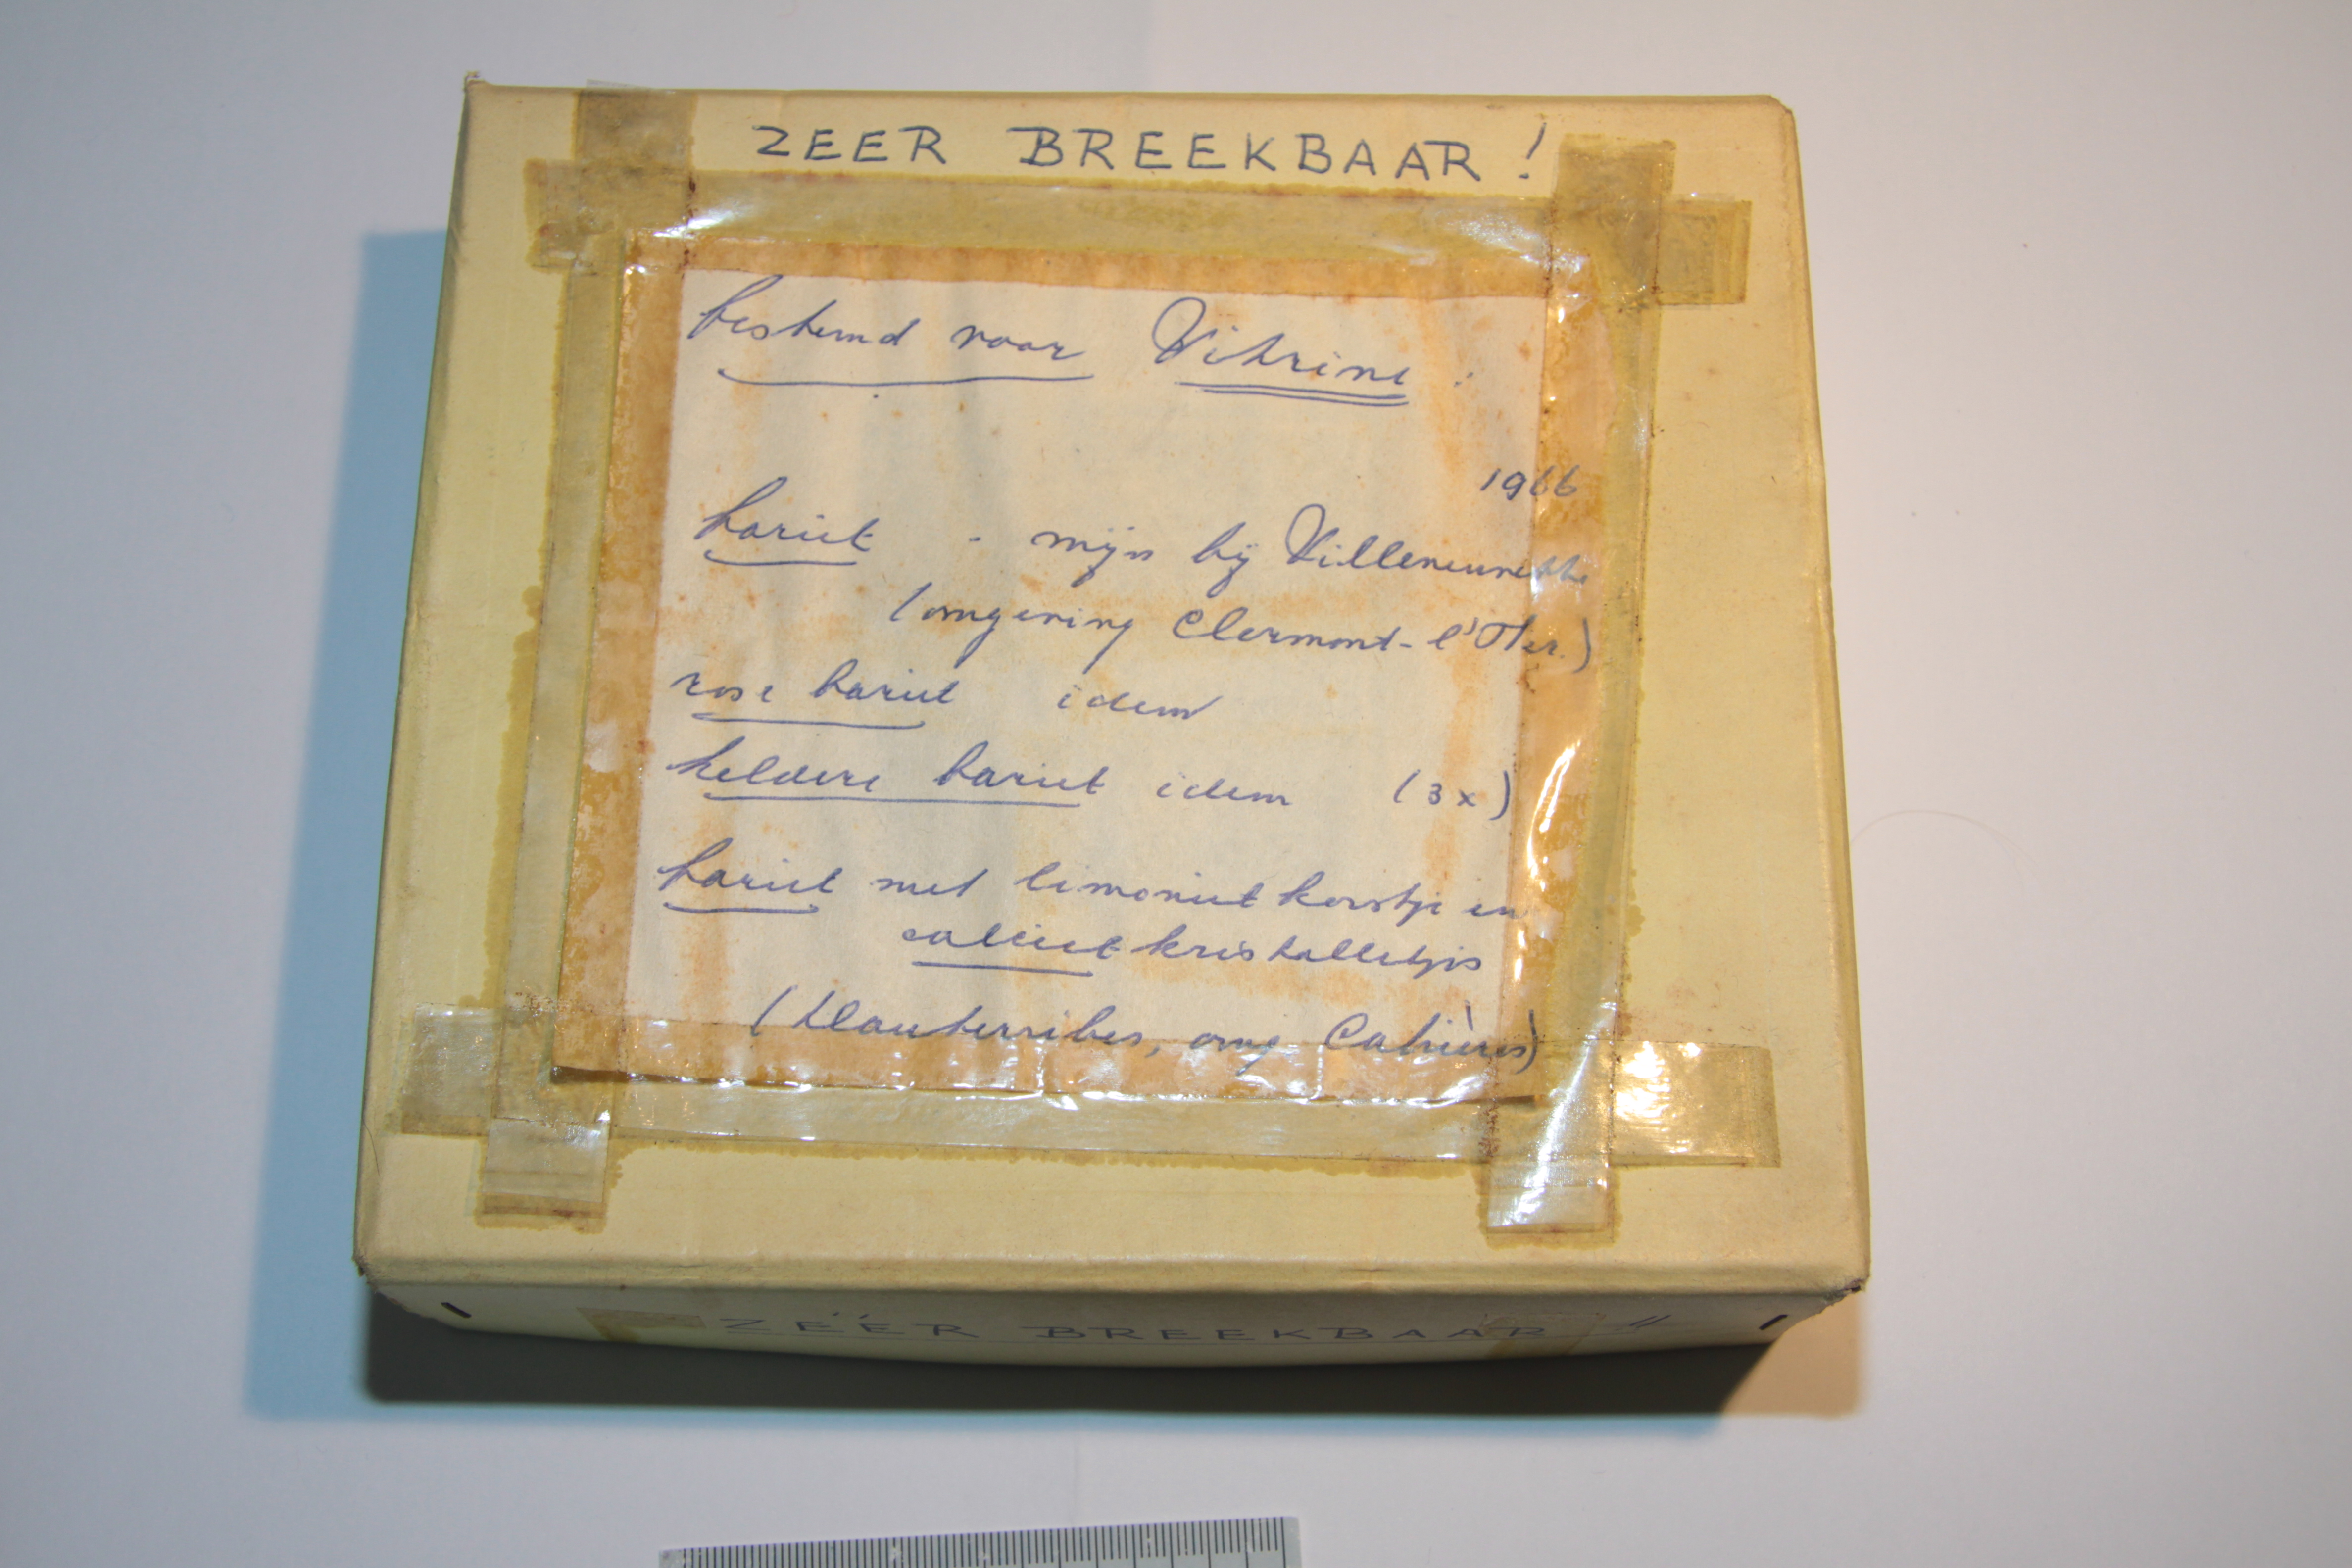 ZEER BREEKBAAR !
bestemd voor Vitrine :
1966
bariet - mijn bij Villeneuvette
(omgeving Clermont-l'Her.)
rose bariet idem
heldere bariet idem (3x)
bariet met limoniet korstje en
calciet kristalletjes
(Hauterribes, omg Cabrières)
ZÉÉR BREEKBAAR !!